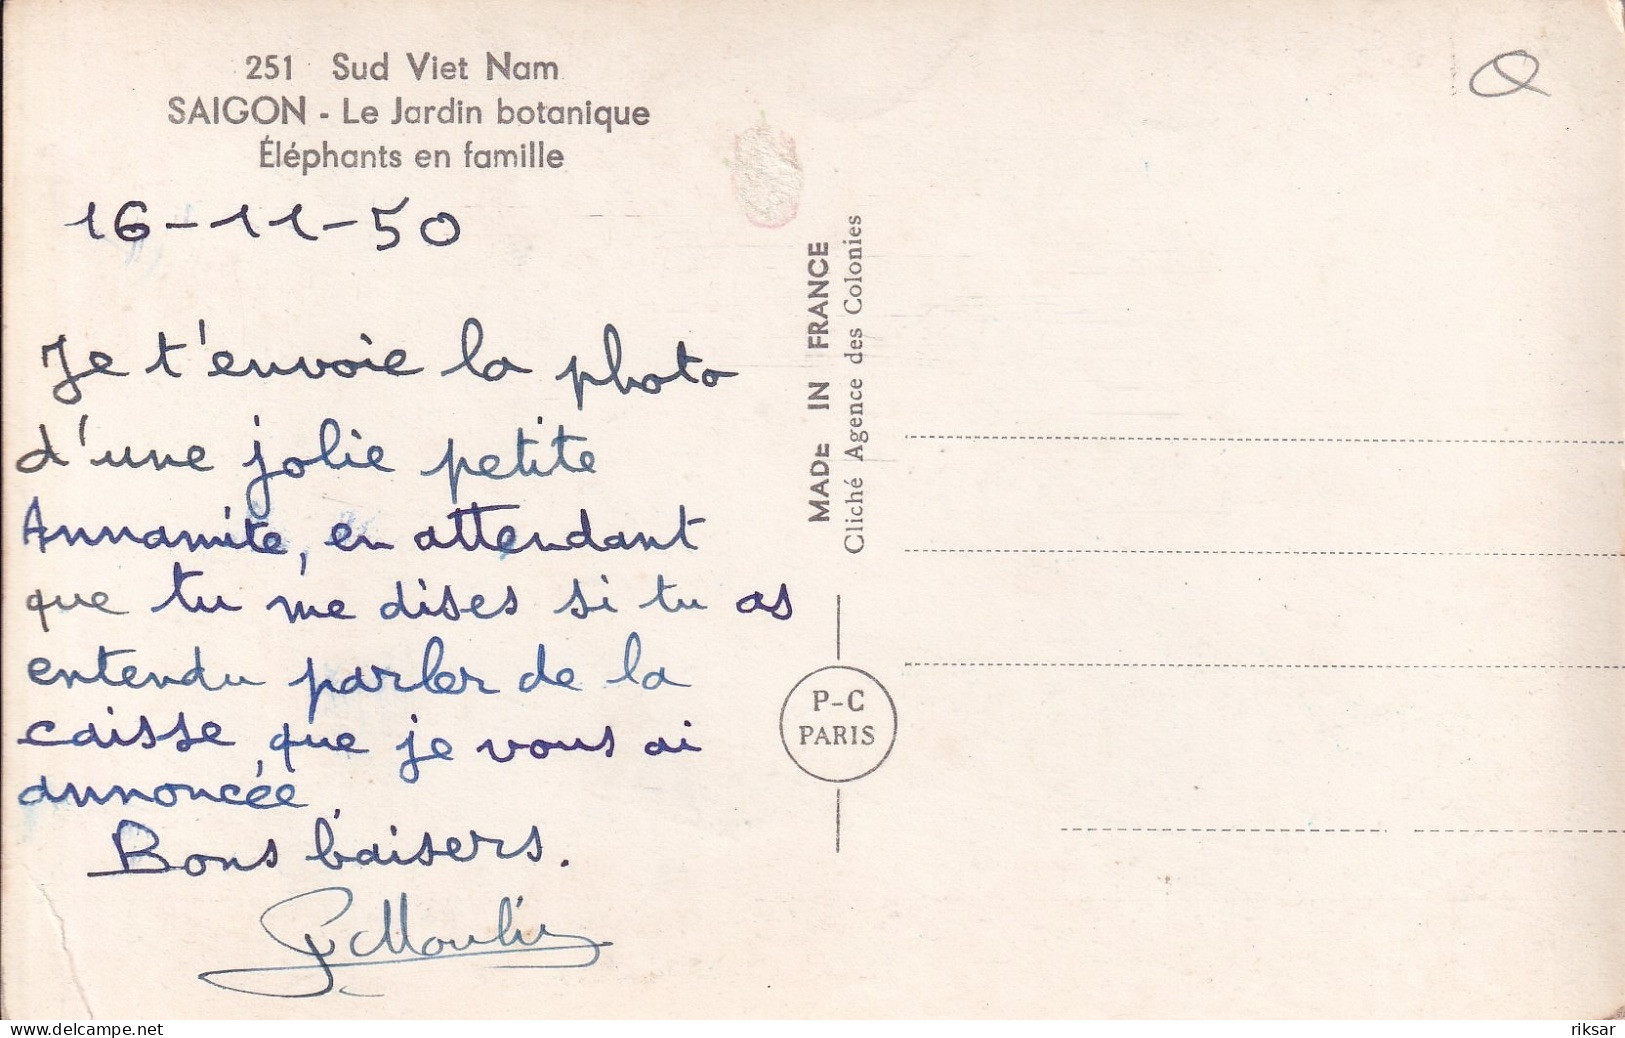 251 Sud Viet Nam
SAIGON - Le Jardin botanique
Éléphants en famille
16-11-50
Je t'envoie la photo
d'une jolie petite
Annamite, en attendant
que tu me dises si tu as
entendu parler de la
caisse, que je vous ai
annoncée.
Bons baisers.
MADE IN FRANCE
Cliché Agence des Colonies
P-C
PARIS
delcampe.net
riksar